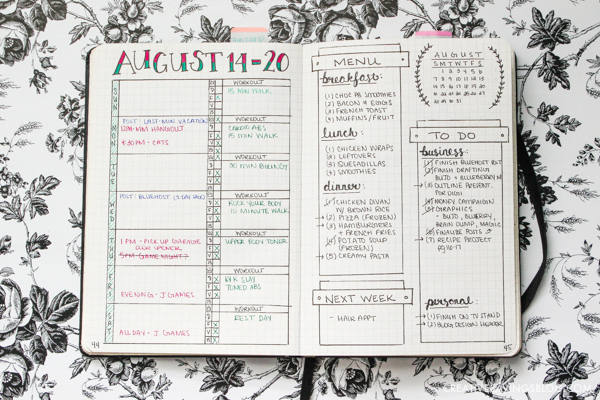 AUGUST 14-20
WORKOUT
15 MIN WALK
POST: LAST-MIN VACATION
WORKOUT
MM HANGOUT
CARDIO ABS
15 MIN WALK
4:30 PM - CATS
WORKOUT
30 MIN BIKING
POST: BLUEHOST
WORKOUT
ROCK YOUR BODY
10 MINUTE WALK
WORKOUT
1 PM - PICK UP GARAGE
DOOR OPENER
UPPER BODY TONER
5PM-GAME NIGHT?
WORKOUT
TONED ABS
EVENING - J GAMES
WORKOUT
REST DAY
ALL DAY - J GAMES
44
MENU
breakfast:
(1) CHOC PB SMOOTHIES
(2) BACON & EGGS
(3) FRENCH TOAST
(4) MUFFINS/FRUIT
lunch:
(1) CHICKEN WRAPS
(2) LEFTOVERS
(3) QUESADILLAS
(4) SMOOTHIES
dinner:
(1) CHICKEN DIVAN
W/ BROWN RICE
(2) PIZZA (FROZEN)
(3) HAMBURGERS
+ FRENCH FRIES
(4) POTATO SOUP
(FROZEN)
(5) CREAMY PASTA
NEXT WEEK
- HAIR APPT
AUGUST
S M T W T F S
1 2 3 4 5 6
7 8 9 10 11 12 13
14 15 16 17 18 19 20
21 22 23 24 25 26 27
28 29 30 31
TO DO
business:
(1) FINISH BLUEHOST
(2) FINISH DRAFTING
BUJO + BLUEBERRY
(3) OUTLINE PRESENT.
(4) MONEY CAMPAIGN
(5) GRAPHICS
- BUJO, BLUEBERRY,
BRAIN DUMP, MAGIC
(6) FINALIZE POSTS
(7) RECIPE PROJECT
personal:
(1) FINISH ON TV STAND
(2) BLOG DESIGN HEADER
45